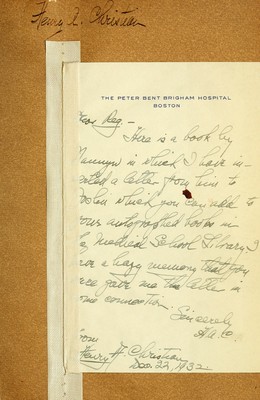 Henry A. Christian
THE PETER BENT BRIGHAM HOSPITAL
BOSTON
Dear Reg —
Here is a book by
in which I have in-
a letter from him to
which you can add to
your autographed books in
Medical School Library. I
have a hazy memory that you
once gave me this letter in
some connection.
Sincerely
H.A.C.
From
Henry A Christian
Dec. 22, 1932